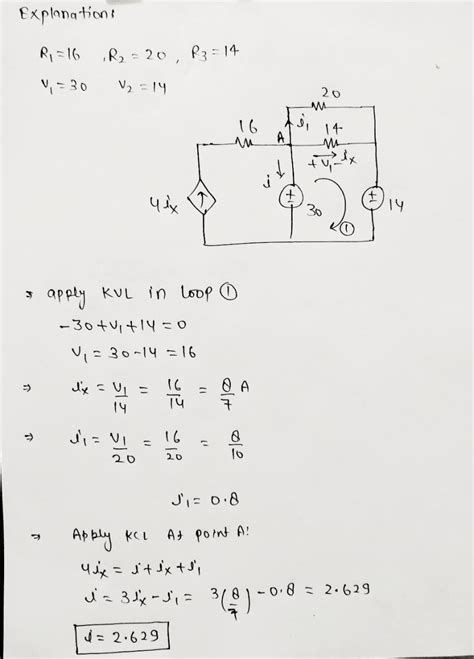 Explanation:
R₁=16 , R₂ = 20 , R₃ = 14
V₁ = 30 V₂ = 14
20
16 A i₁ 14
+ V₁ - iₓ
i
4iₓ ± 30 ± 14
①
⇒ apply KVL in loop ①
-30+V₁+14=0
V₁ = 30-14 = 16
⇒ iₓ = V₁/14 = 16/14 = 8/7 A
⇒ i₁ = V₁/20 = 16/20 = 8/10
i₁ = 0.8
⇒ Apply KCL At point A:
4iₓ = i + iₓ + i₁
i = 3iₓ - i₁ = 3(8/7) - 0.8 = 2.629
i = 2.629